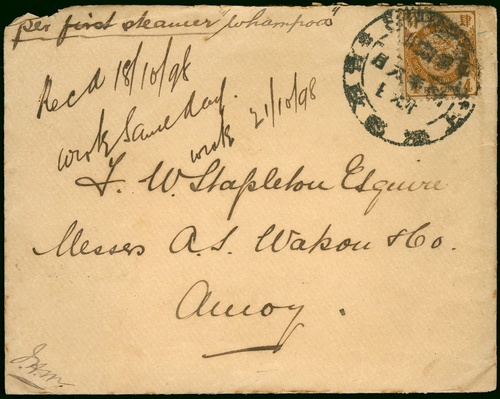 per first steamer "Whampoa"
Recd 18/10/98
wrote same day.
wrote 21/10/98
F. W. Stapleton Esquire
Messrs A. S. Watson & Co.
Amoy.
J.H.M.
肆
4